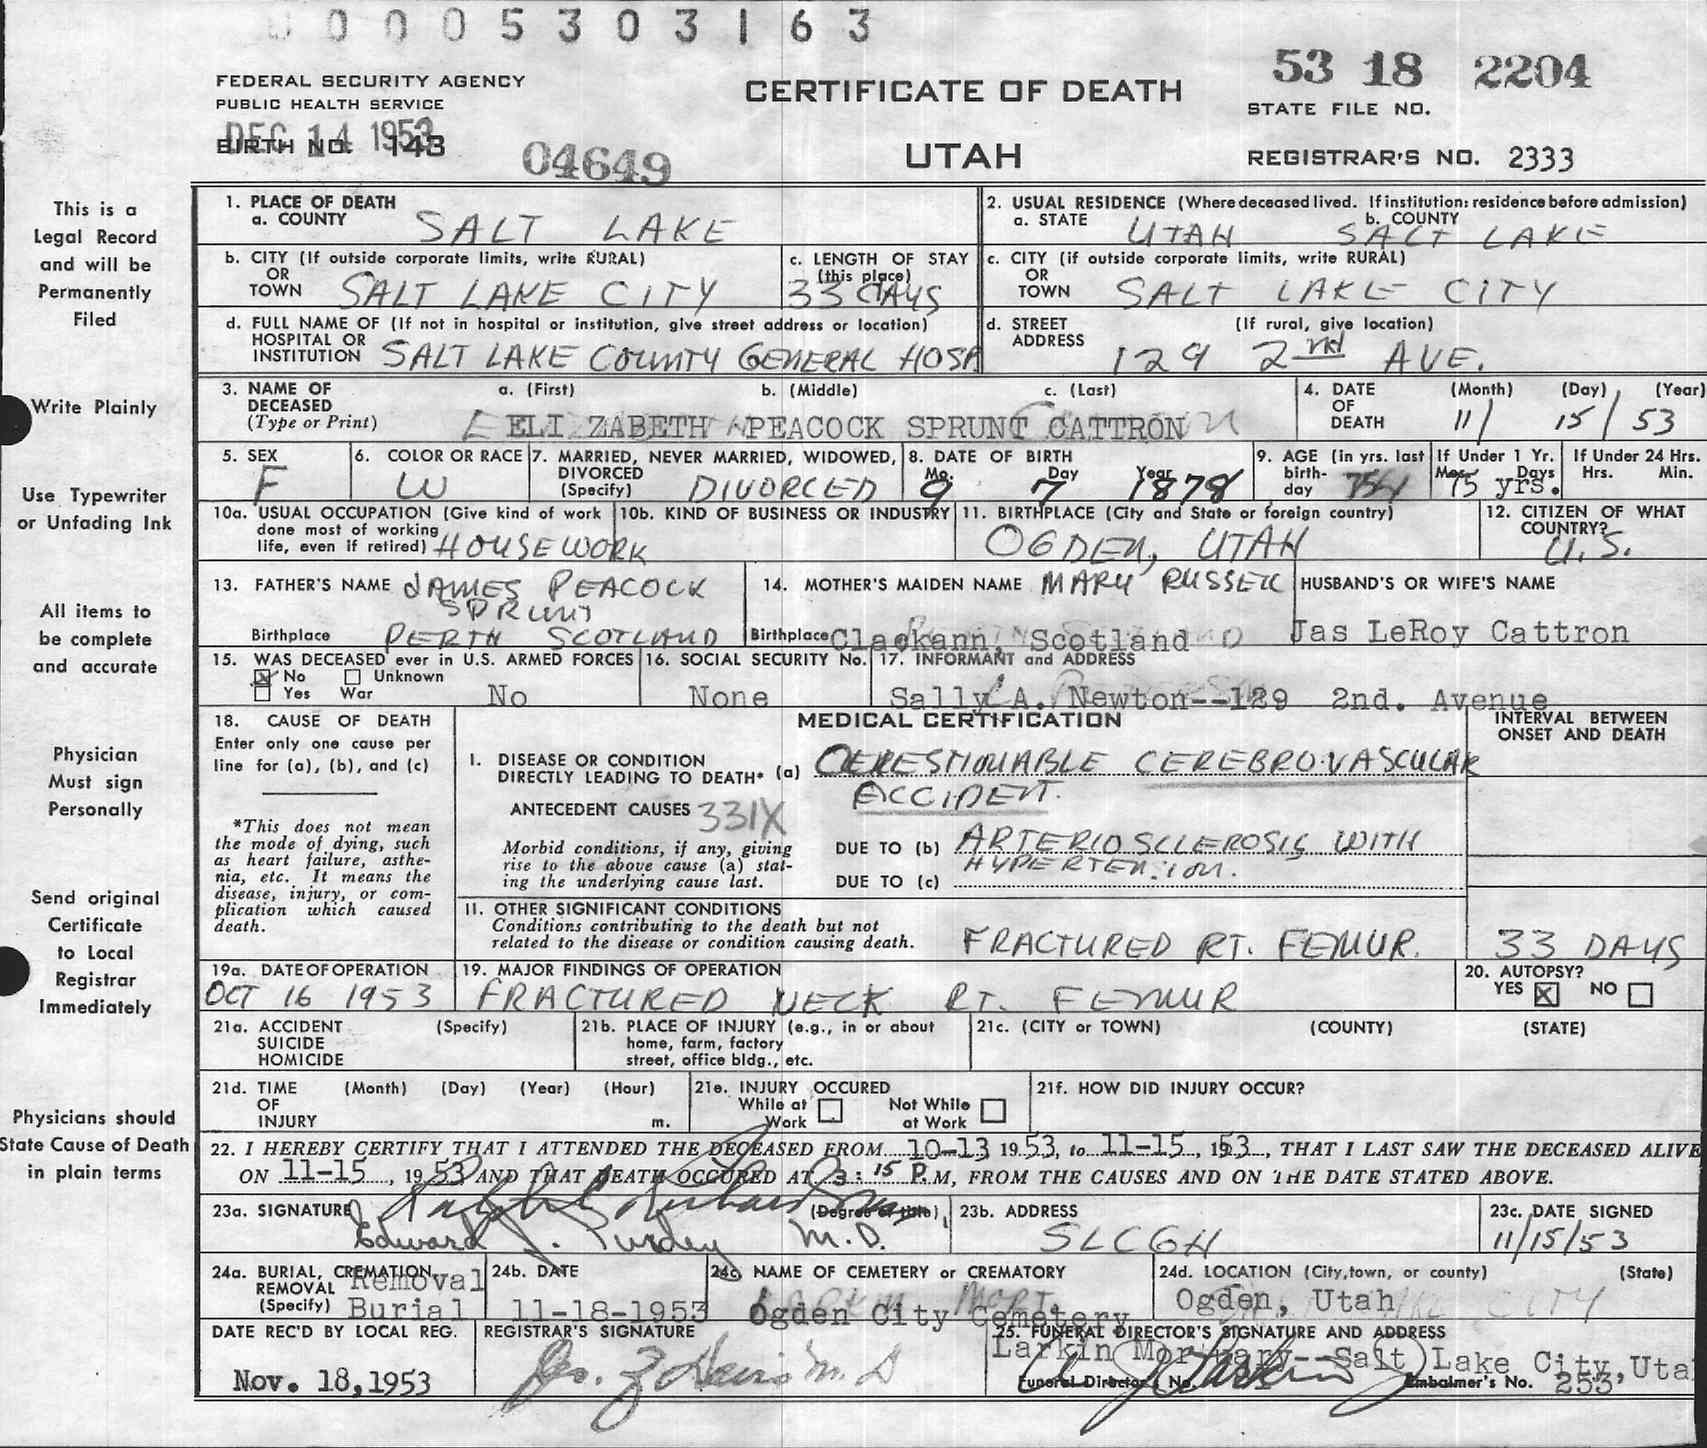 0 0 0 5 3 0 3 1 6 3
FEDERAL SECURITY AGENCY
PUBLIC HEALTH SERVICE
DEC 14 1953
BIRTH NO. 143
04649
CERTIFICATE OF DEATH
UTAH
53 18 2204
STATE FILE NO.
REGISTRAR'S NO. 2333
This is a
Legal Record
and will be
Permanently
Filed
Write Plainly
Use Typewriter
or Unfading Ink
All items to
be complete
and accurate
Physician
Must sign
Personally
Send original
Certificate
to Local
Registrar
Immediately
Physicians should
State Cause of Death
in plain terms
1. PLACE OF DEATH
a. COUNTY SALT LAKE
2. USUAL RESIDENCE (Where deceased lived. If institution: residence before admission)
a. STATE UTAH b. COUNTY SALT LAKE
b. CITY (If outside corporate limits, write RURAL)
OR
TOWN SALT LAKE CITY
c. LENGTH OF STAY
(this place)
33 DAYS
c. CITY (if outside corporate limits, write RURAL)
OR
TOWN SALT LAKE CITY
d. FULL NAME OF (If not in hospital or institution, give street address or location)
HOSPITAL OR
INSTITUTION SALT LAKE COUNTY GENERAL HOSP
d. STREET (If rural, give location)
ADDRESS 129 2nd AVE.
3. NAME OF a. (First) b. (Middle) c. (Last)
DECEASED
(Type or Print) ELIZABETH PEACOCK SPRUNT CATTRON
4. DATE (Month) (Day) (Year)
OF
DEATH 11/ 15/ 53
5. SEX
F
6. COLOR OR RACE
W
7. MARRIED, NEVER MARRIED, WIDOWED,
DIVORCED
(Specify) DIVORCED
8. DATE OF BIRTH
Mo. Day Year
9 7 1878
9. AGE (in yrs. last
birth-
day
If Under 1 Yr.
Mos. Days
75 yrs.
If Under 24 Hrs.
Hrs. Min.
10a. USUAL OCCUPATION (Give kind of work
done most of working
life, even if retired) HOUSEWORK
10b. KIND OF BUSINESS OR INDUSTRY
11. BIRTHPLACE (City and State or foreign country)
OGDEN, UTAH
12. CITIZEN OF WHAT
COUNTRY?
U.S.
13. FATHER'S NAME JAMES PEACOCK
SPRUNT
Birthplace PERTH SCOTLAND
14. MOTHER'S MAIDEN NAME MARY RUSSELL
Birthplace Clackann, Scotland
HUSBAND'S OR WIFE'S NAME
Jas LeRoy Cattron
15. WAS DECEASED ever in U.S. ARMED FORCES
No Unknown
Yes War No
16. SOCIAL SECURITY No.
None
17. INFORMANT and ADDRESS
Sally A. Newton--129 2nd. Avenue
18. CAUSE OF DEATH
Enter only one cause per
line for (a), (b), and (c)
*This does not mean
the mode of dying, such
as heart failure, asthe-
nia, etc. It means the
disease, injury, or com-
plication which caused
death.
MEDICAL CERTIFICATION
INTERVAL BETWEEN
ONSET AND DEATH
I. DISEASE OR CONDITION
DIRECTLY LEADING TO DEATH* (a) CEREBROVASCULAR
ACCIDENT.
ANTECEDENT CAUSES 331X
Morbid conditions, if any, giving
rise to the above cause (a) stat-
ing the underlying cause last.
DUE TO (b) ARTERIOSCLEROSIS WITH
HYPERTENSION.
DUE TO (c)
II. OTHER SIGNIFICANT CONDITIONS
Conditions contributing to the death but not
related to the disease or condition causing death.
FRACTURED RT. FEMUR. 33 DAYS
19a. DATE OF OPERATION
OCT 16 1953
19. MAJOR FINDINGS OF OPERATION
FRACTURED NECK RT. FEMUR
20. AUTOPSY?
YES X NO
21a. ACCIDENT (Specify)
SUICIDE
HOMICIDE
21b. PLACE OF INJURY (e.g., in or about
home, farm, factory
street, office bldg., etc.
21c. (CITY or TOWN) (COUNTY) (STATE)
21d. TIME (Month) (Day) (Year) (Hour)
OF
INJURY m.
21e. INJURY OCCURED
While at Work Not While at Work
21f. HOW DID INJURY OCCUR?
22. I HEREBY CERTIFY THAT I ATTENDED THE DECEASED FROM 10-13 1953, to 11-15, 1953, THAT I LAST SAW THE DECEASED ALIVE
ON 11-15, 1953 AND THAT DEATH OCCURED AT 3:15 P.M, FROM THE CAUSES AND ON THE DATE STATED ABOVE.
23a. SIGNATURE (Degree or title)
Edward J. M.D.
23b. ADDRESS
SLCGH
23c. DATE SIGNED
11/15/53
24a. BURIAL, CREMATION,
REMOVAL
(Specify) Removal
Burial
24b. DATE
11-18-1953
24c. NAME OF CEMETERY or CREMATORY
Ogden City Cemetery
24d. LOCATION (City, town, or county) (State)
Ogden, Utah
DATE REC'D BY LOCAL REG.
Nov. 18, 1953
REGISTRAR'S SIGNATURE
25. FUNERAL DIRECTOR'S SIGNATURE AND ADDRESS
Larkin Mortuary--Salt Lake City, Uta
Funeral Director's No. Embalmer's No. 253